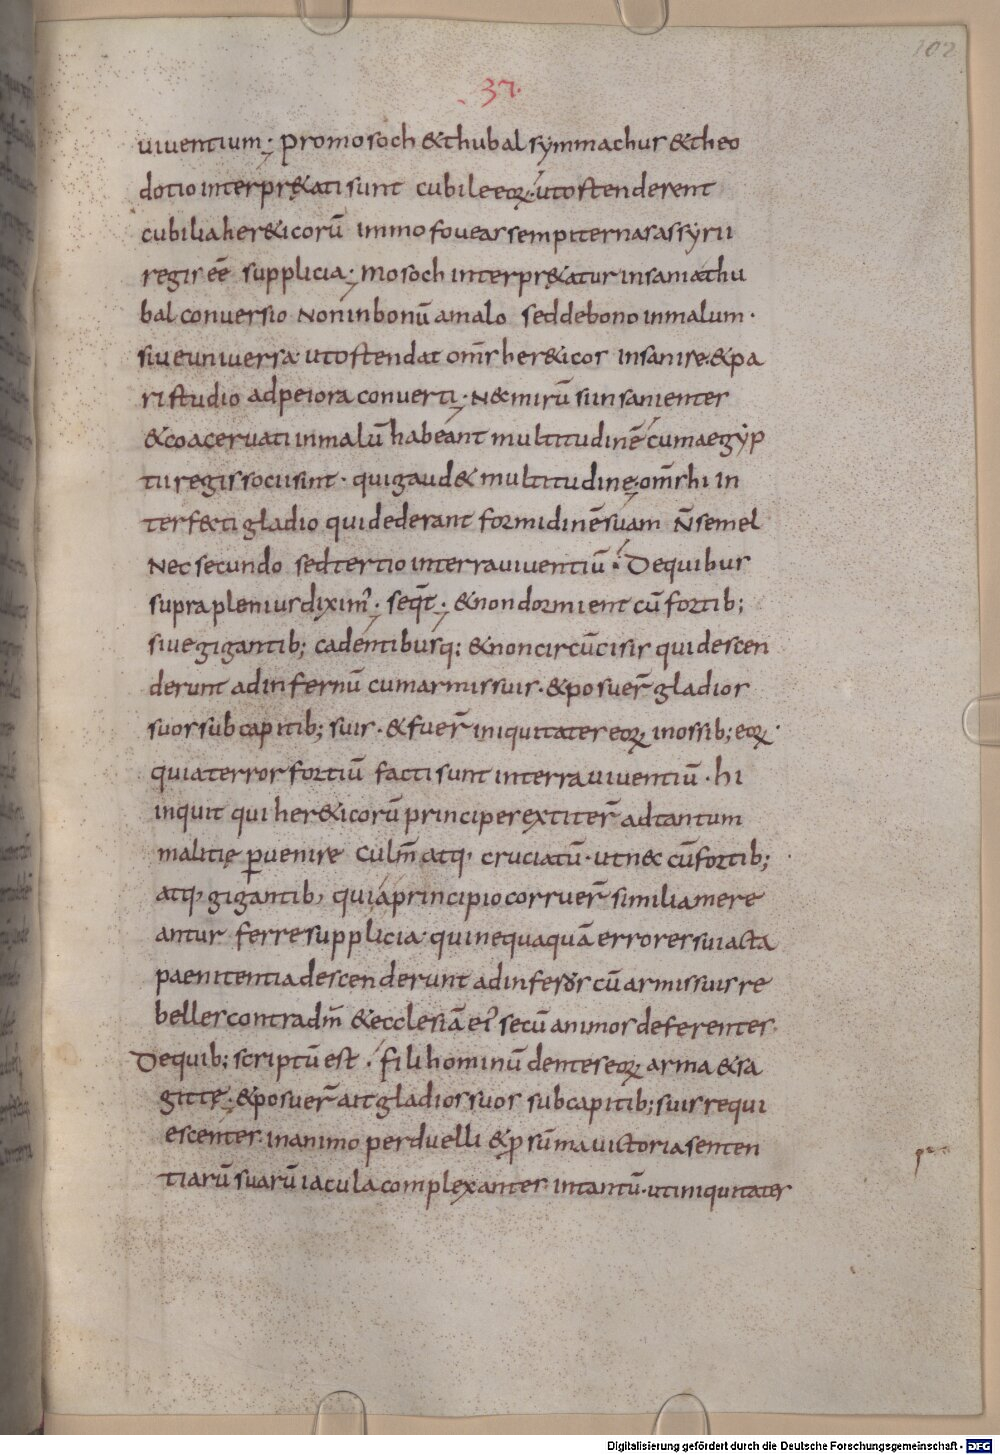 102
37.
uiuentium; promosoch &thubal symmachus &theo
dotio interpr&ati sunt cubile eoꝝ; ut ostenderent
cubilia her&icorū immo foueas sempiternas assyrii
regis eē supplicia; mosoch interpr&atur insania thu
bal conuersio Non in bonū a malo sed de bono in malum.
siue uniuersa ut ostendat om̄s her&icos insanire. &pa
ri studio ad peiora conuerti; N& mirū si insanienter
&coaceruati in malū habeant multitudinē cum aegyp
tii regis socii sint. qui gaud& multitudine; om̄s hi in
terf&ti gladio qui dederant formidinē suam N̄ semel
Nec secundo sed tertio in terra uiuentiū; De quibus
supra plenius diximꝰ; seqt̄; &non dormient cū fortib;
siue gigantib; cadentibusq; &non circūcisis qui descen
derunt ad infernū cum armis suis. &posuer̄ gladios
suos sub capitib; suis. &fuer̄ iniquitates eoꝝ in ossib; eoꝝ
quia terror fortiū facti sunt in terra uiuentiū. hi
inquit qui her&icorū principes extiter̄ ad tantum
malitię ꝑuenire culm̄ atq, cruciatū. ut n& cū fortib;
atq, gigantib, qui a principio corruer̄ similia mere
antur ferre supplicia. qui nequaquā errores sui acta
paenitentia descenderunt ad inferos cū armis suis re
belles contra dm̄ &ecclesiā eiꝰ secū animos deferentes.
De quib; scriptū est; filii hominū dentes eoꝝ arma &sa
gittę; &posuer̄ ait gladios suos sub capitib; suis requi
escentes in animo perduelli &ꝓ sūma uictoria senten
tiarū suarū iacula complexantes. in tantū. ut iniquitates
Digitalisierung gefördert durch die Deutsche Forschungsgemeinschaft - DFG